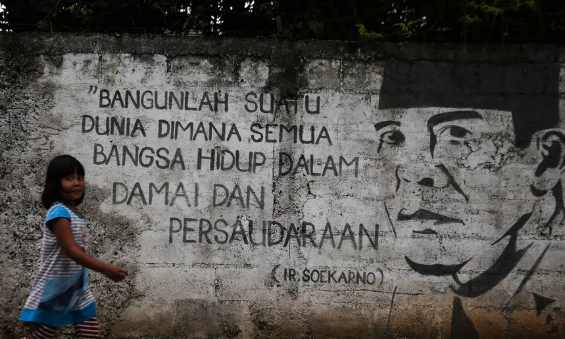 "BANGUNLAH SUATU
DUNIA DIMANA SEMUA
BANGSA HIDUP DALAM
DAMAI DAN
PERSAUDARAAN
(IR. SOEKARNO)